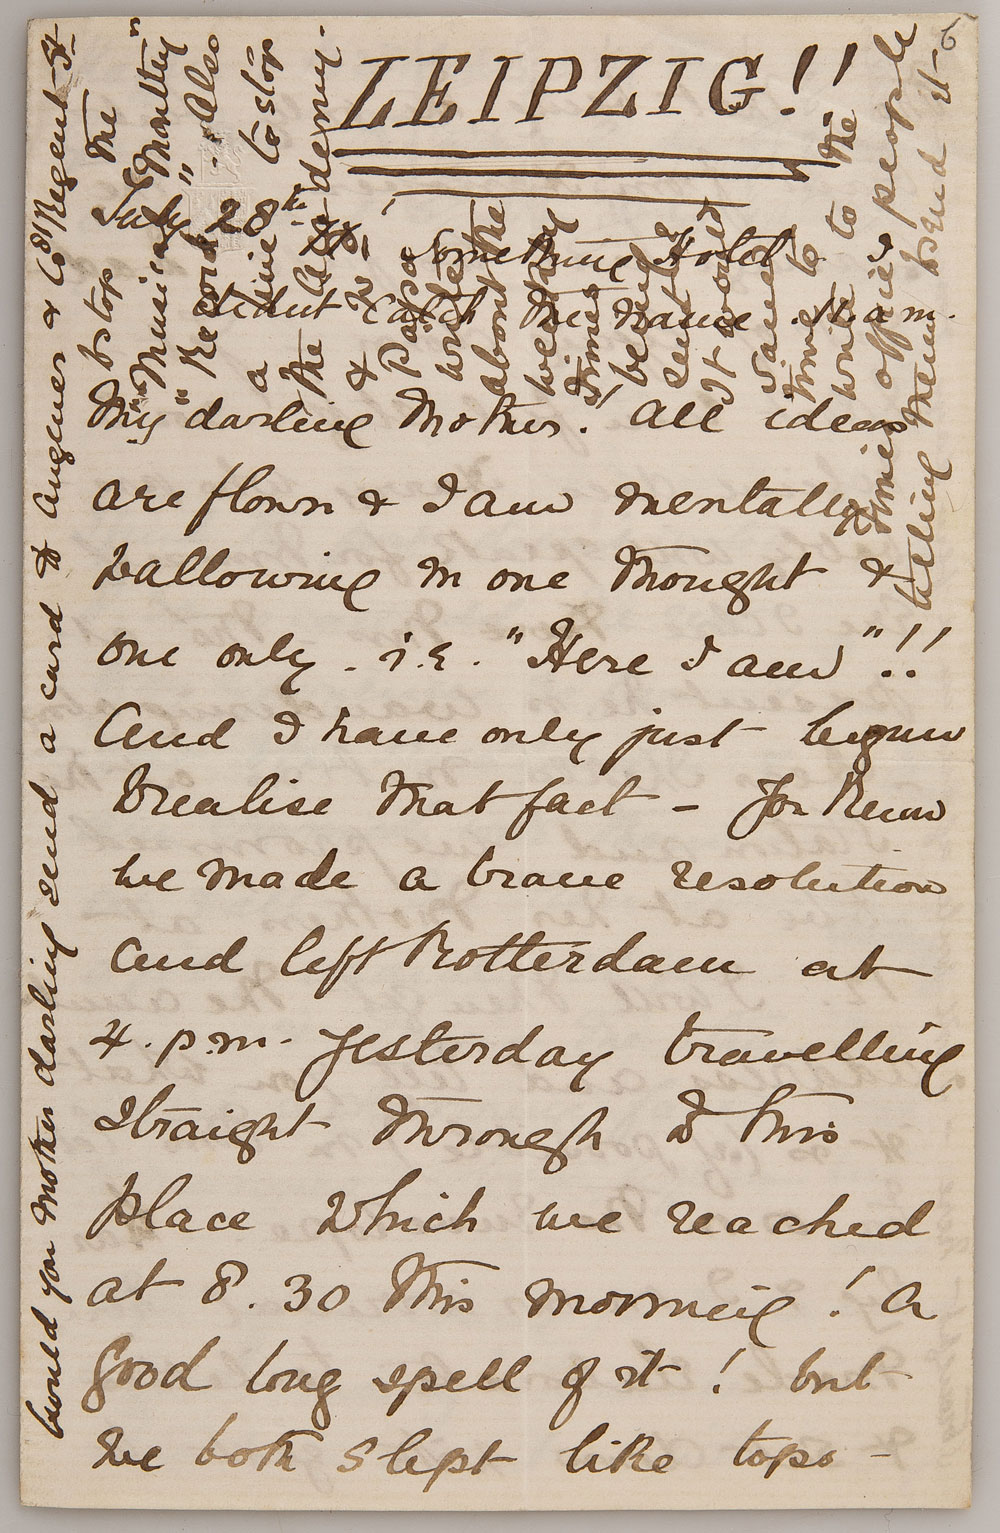 6
LEIPZIG!!
July 28th
Something Hotel
didnt catch the name. 11. a m.
My darling Mother. All ideas
are flown & I am mentally
wallowing in one thought &
one only. i.e. "Here I am"!!
And I have only just begun
to realise that fact - for
we made a brave resolution
and left Rotterdam at
4. p.m. yesterday travelling
straight through to this
place which we reached
at 8.30 this morning! A
good long spell of it! but
we both slept like tops -
would you Mother darling send a card to Augener & Co 81 Regent St
to stop the
"Musical Monthly"
"Record". Also
a line to stop
the Academy.
&
Papa
write
about the
weekly
Times
being
sent.
It would
save
time to
write to the
Times office people
telling them to send it